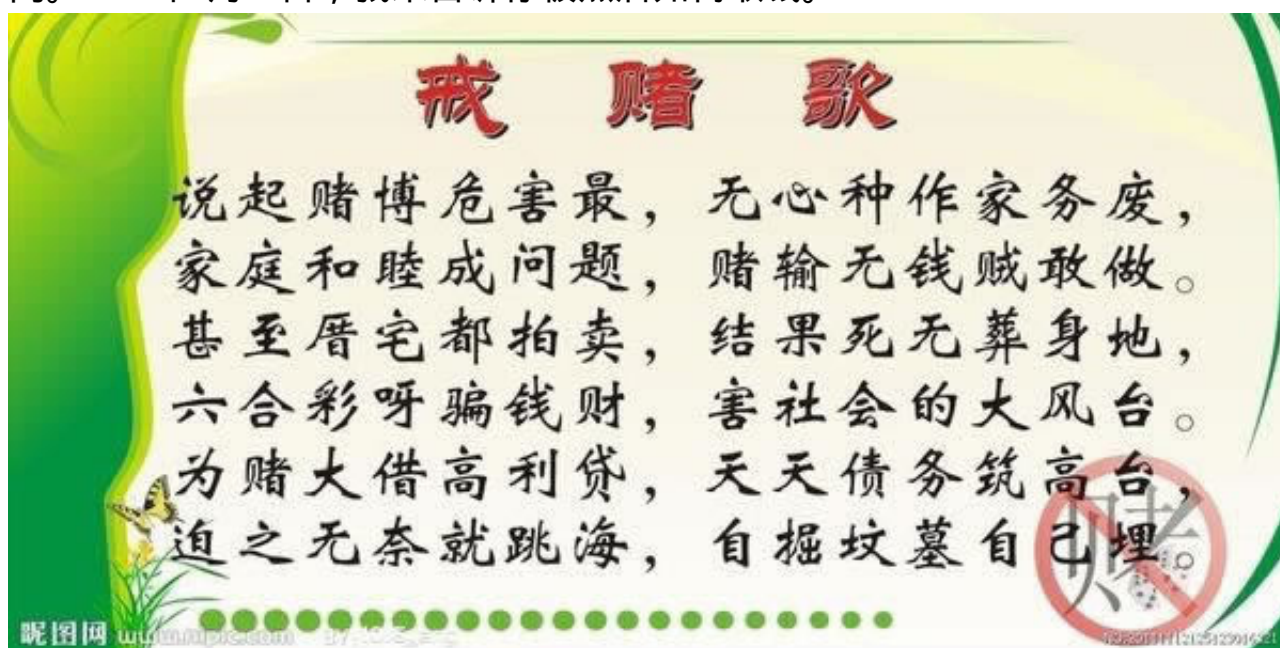 戒赌歌
说起赌博危害最，无心种作家务废，
家庭和睦成问题，赌输无钱贼敢做。
甚至厝宅都拍卖，结果死无葬身地，
六合彩呀骗钱财，害社会的大风台。
为赌大借高利贷，天天债务筑高台，
迫之无奈就跳海，自掘坟墓自己埋。
赌
昵图网